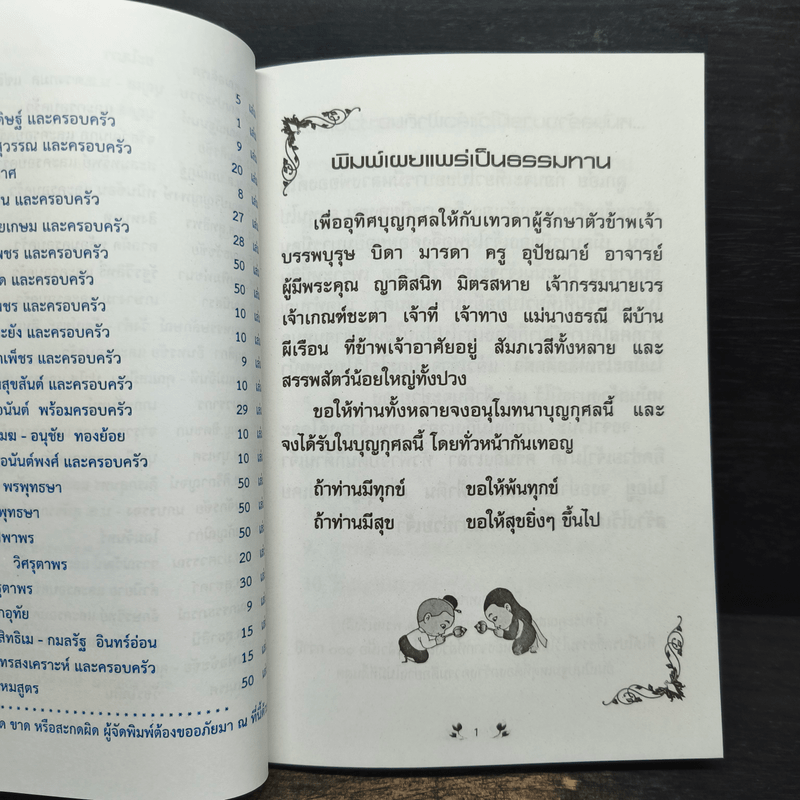 5 เล่ม
ดิษฐ์ และครอบครัว 1 เล่ม
สุวรรณ และครอบครัว 9 เล่ม
กาศ 20 เล่ม
และครอบครัว 8 เล่ม
ยเกษม และครอบครัว 27 เล่ม
พชร และครอบครัว 28 เล่ม
ด และครอบครัว 50 เล่ม
และครอบครัว 50 เล่ม
ะยัง และครอบครัว 10 เล่ม
าเพ็ชร และครอบครัว 10 เล่ม
สุขสันต์ และครอบครัว 9 เล่ม
อนันต์ พร้อมครอบครัว 10 เล่ม
เมฆ - อนุชัย ทองย้อย 29 เล่ม
อนันต์พงศ์ และครอบครัว 10 เล่ม
พรพุทธษา 10 เล่ม
พุทธษา 50 เล่ม
พาพร 50 เล่ม
วิศรุตาพร 50 เล่ม
รุตาพร 20 เล่ม
กอุทัย 30 เล่ม
สิทธิเม - กมลรัฐ อินทร์อ่อน 9 เล่ม
ทรสงเคราะห์ และครอบครัว 15 เล่ม
หมสูตร 15 เล่ม
50 เล่ม
ขาด หรือสะกดผิด ผู้จัดพิมพ์ต้องขออภัยมา ณ ที่นี้ด้วย
พิมพ์เผยแพร่เป็นธรรมทาน
เพื่ออุทิศบุญกุศลให้กับเทวดาผู้รักษาตัวข้าพเจ้า
บรรพบุรุษ บิดา มารดา ครู อุปัชฌาย์ อาจารย์
ผู้มีพระคุณ ญาติสนิท มิตรสหาย เจ้ากรรมนายเวร
เจ้าเกณฑ์ชะตา เจ้าที่ เจ้าทาง แม่นางธรณี ผีบ้าน
ผีเรือน ที่ข้าพเจ้าอาศัยอยู่ สัมภเวสีทั้งหลาย และ
สรรพสัตว์น้อยใหญ่ทั้งปวง
ขอให้ท่านทั้งหลายจงอนุโมทนาบุญกุศลนี้ และ
จงได้รับในบุญกุศลนี้ โดยทั่วหน้ากันเทอญ
ถ้าท่านมีทุกข์ ขอให้พ้นทุกข์
ถ้าท่านมีสุข ขอให้สุขยิ่งๆ ขึ้นไป
1